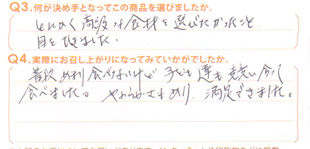 Q3.何が決め手となってこの商品を選びましたか。
とにかく高級な食材を選びたかったこと
目をひきました。
Q4.実際にお召し上がりになってみていかがでしたか。
普段あまり食べないけど子ども達も競い合って
食べました。やわらかさもあり、満足できました。